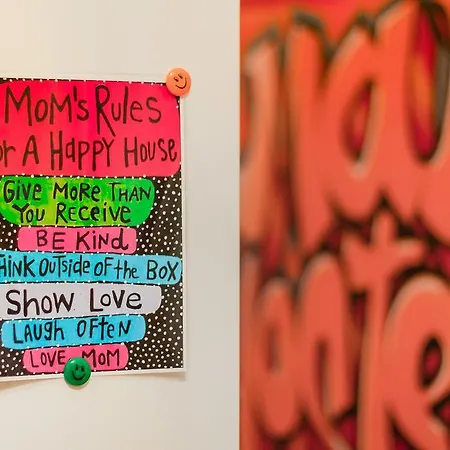 Mom's Rules
or A Happy House
Give More Than
You Receive
Be Kind
hink Outside of the Box
Show Love
Laugh Often
Love, Mom